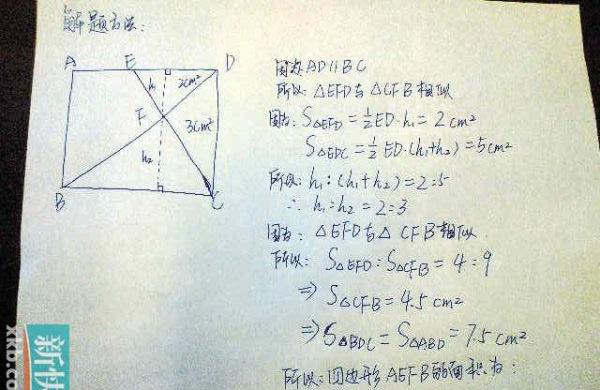 解题方法:
A E D
h₁ 2cm²
F 3cm²
h₂
B C
因为 AD∥BC
所以: △EFD与△CFB相似
因为: S△EFD = ½ED·h₁ = 2cm²
S△EDC = ½ED·(h₁+h₂) = 5cm²
所以: h₁:(h₁+h₂) = 2:5
∴ h₁:h₂ = 2:3
因为: △EFD与△CFB相似
所以: S△EFD:S△CFB = 4:9
⇒ S△CFB = 4.5cm²
⇒ S△BDC = S△ABD = 7.5cm²
所以: 四边形AEFB的面积为:
新快
xkb.com